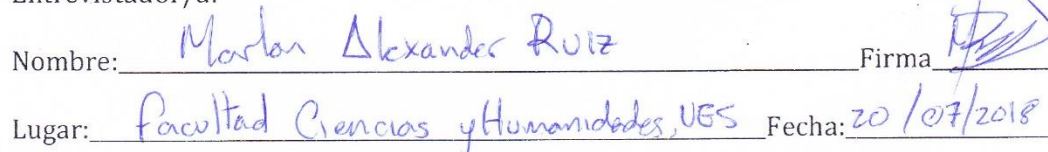 Entrevistador/a:
Nombre: Marlon Alexander Ruiz Firma
Lugar: Facultad Ciencias y Humanidades, UES Fecha: 20/07/2018